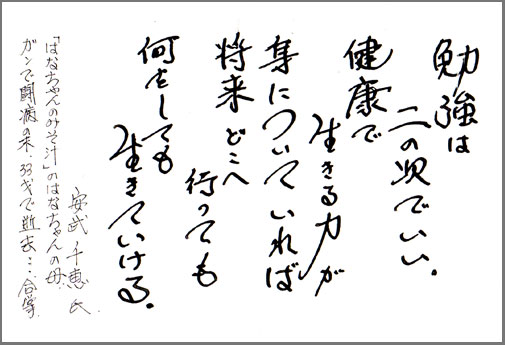 勉強は
二の次でいい。
健康で
生きる力が
身についていれば
将来どこへ
行っても
何をしても
生きていける。
安武千恵氏
「はなちゃんのみそ汁」のはなちゃんの母、
ガンで闘病の末、33才で逝去…合掌